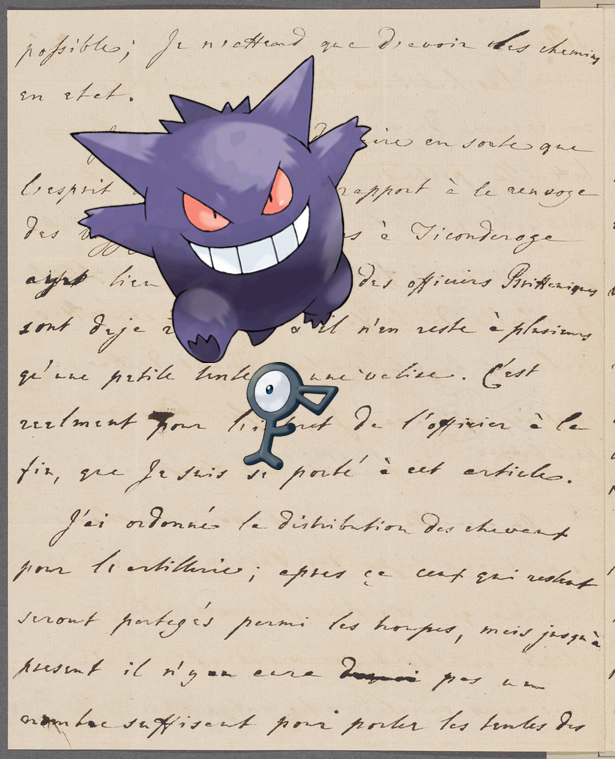 possible; Je n'attend que d'avoir des chemins
en etat.
ire en sorte que
l'esprit rapport à le renvoye
des à Ticonderoge
ayet lien des officiers Brittaniques
sont deja il n'en reste à plusieurs
qu'une petite tente une valise. C'est
realment pour l'i ret de l'officier à la
fin, que Je suis si porté à cet article.
J'ai ordonné la distribution des chevaux
pour l'artillerie; apres ça ceux qui restent
seront partagés parmi les troupes, mais jusqu'à
present il n'y en aura pas un
nombre suffisent pour porter les tentes des